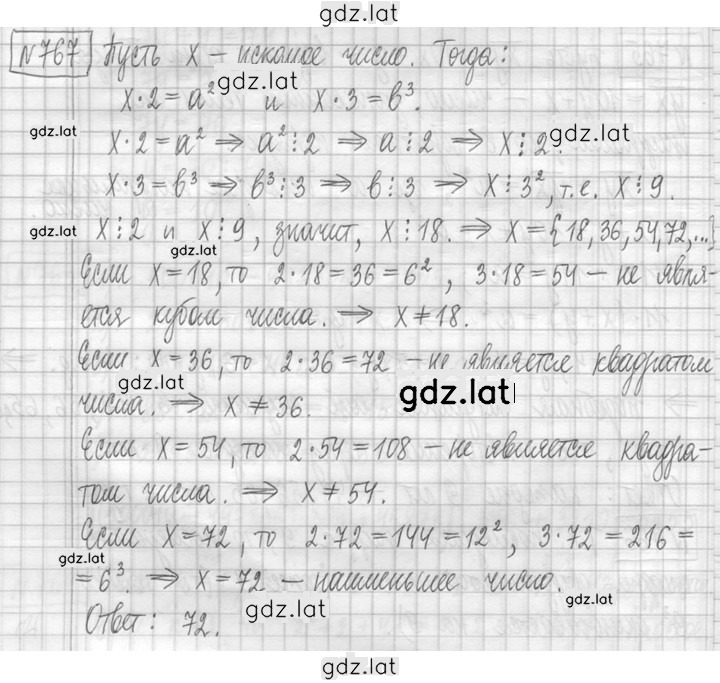 gdz.lat
№767 Пусть x – искомое число. Тогда:
gdz.lat
x·2=a² и x·3=b³.
gdz.lat gdz.lat
x·2=a² ⇒ a²⋮2 ⇒ a⋮2 ⇒ x⋮2.
x·3=b³ ⇒ b³⋮3 ⇒ b⋮3 ⇒ x⋮3², т.е. x⋮9.
gdz.lat x⋮2 и x⋮9, значит, x⋮18. ⇒ x={18,36,54,72,...}
gdz.lat
Если x=18, то 2·18=36=6², 3·18=54 – не явля-
ется кубом числа. ⇒ x≠18.
Если x=36, то 2·36=72 – не является квадратом
gdz.lat gdz.lat
числа. ⇒ x≠36.
Если x=54, то 2·54=108 – не является квадра-
том числа. ⇒ x≠54.
Если x=72, то 2·72=144=12², 3·72=216=
gdz.lat
=6³. ⇒ x=72 – наименьшее число.
gdz.lat gdz.lat
Ответ: 72.
gdz.lat